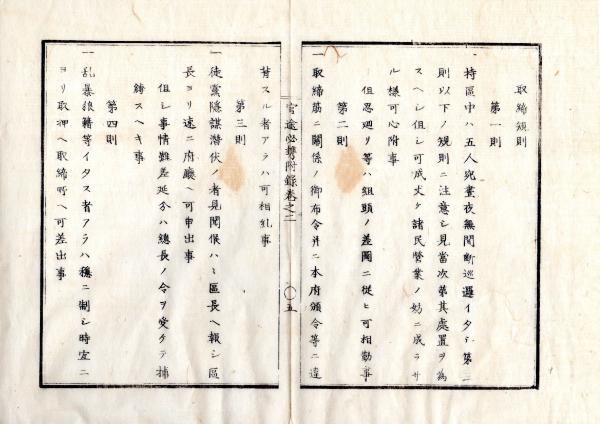 取締規則
第一則
一持區中ハ五人宛晝夜無間斷巡邏イタシ第二
則以下ノ規則ニ注意シ見當次第其處置ヲ為
スヘシ但シ可成丈ケ諸民營業ノ妨ニ成ラサ
ル樣可心附事
但忍廻リ等ハ組頭ノ差圖ニ從ヒ可相勤事
第二則
一取締筋ニ關係ノ御布令幷ニ本府頒令等ニ違
官途必携附錄卷之二
〇五
背スル者アラハ可相糺事
第三則
一徒黨隱謀潜伏ノ者見聞候ハヽ區長ヘ報シ區
長ヨリ速ニ府廳ヘ可申出事
但シ事情難差延分ハ總長ノ令ヲ受ケテ捕
縛スヘキ事
第四則
一乱暴狼籍等イタス者アラハ穩ニ制シ時宜ニ
ヨリ取押ヘ取締所ヘ可差出事